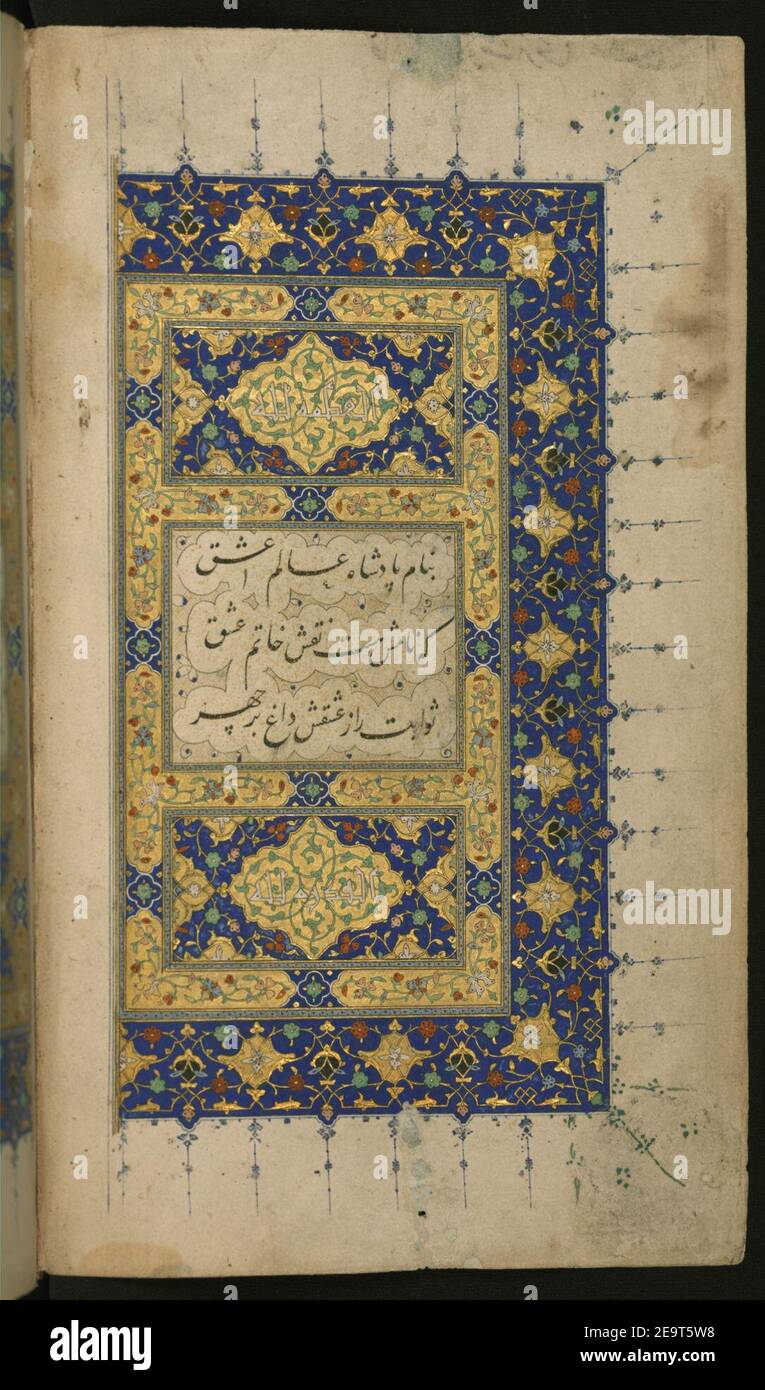 العظمة لله
بنام پادشاه عالم عشق
که نامش هست نقش خاتم عشق
ثوابت را ز عشقش داغ بر چهر
القدرة لله
alamy
alamy
Image ID: 2E9T5W8
www.alamy.com